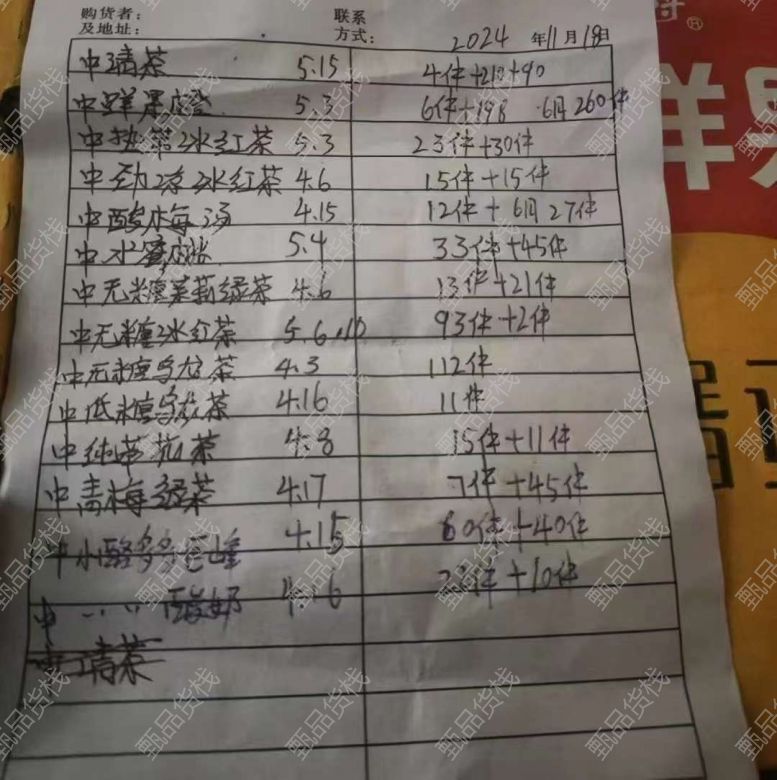 购货者:
及地址:
联系
方式:
2024 年11月18日
中清茶 5.15 4件+210+90
中鲜果橙 5.3 6件+198 6月260件
中热带冰红茶 5.3 23件+30件
中劲凉冰红茶 4.6 15件+15件
中酸梅汤 4.15 12件+6月27件
中水蜜桃 5.4 33件+45件
中无糖茉莉绿茶 4.6 13件+21件
中无糖冰红茶 5.6.10 93件+2件
中无糖乌龙茶 4.3 112件
中低糖乌龙茶 4.16 11件
中纯萃茶 4.8 15件+11件
中青梅绿茶 4.17 7件+45件
中小酪多多 4.15 60件+40件
中 〃 〃 酸奶 4.16 件+10件
清茶
甄品货栈